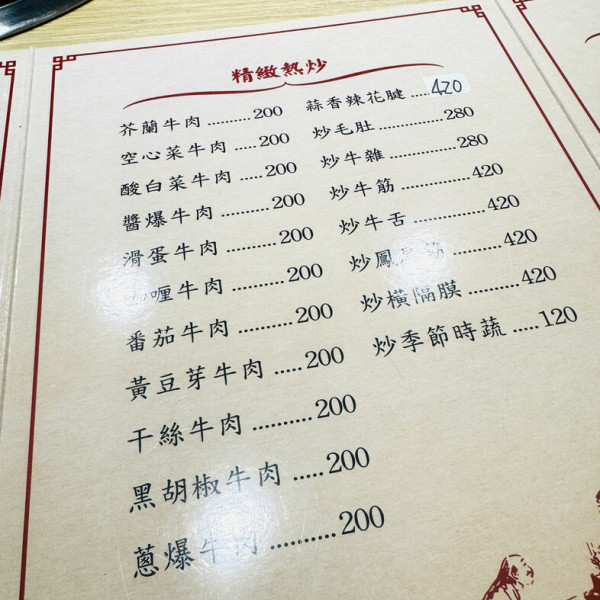 精緻熱炒
芥蘭牛肉 ..........200
空心菜牛肉 .........200
酸白菜牛肉 .........200
醬爆牛肉 ............200
滑蛋牛肉 ............200
喱牛肉 ............200
番茄牛肉 ............200
黃豆芽牛肉 .....200
干絲牛肉 ..........200
黑胡椒牛肉 .....200
蔥爆牛肉 ..........200
蒜香辣花腱 ....420
炒毛肚 ..................280
炒牛雜 ..................280
炒牛筋 ..................420
炒牛舌 ..................420
炒鳳筋 ..........420
炒橫隔膜 ..........420
炒季節時蔬 .....120